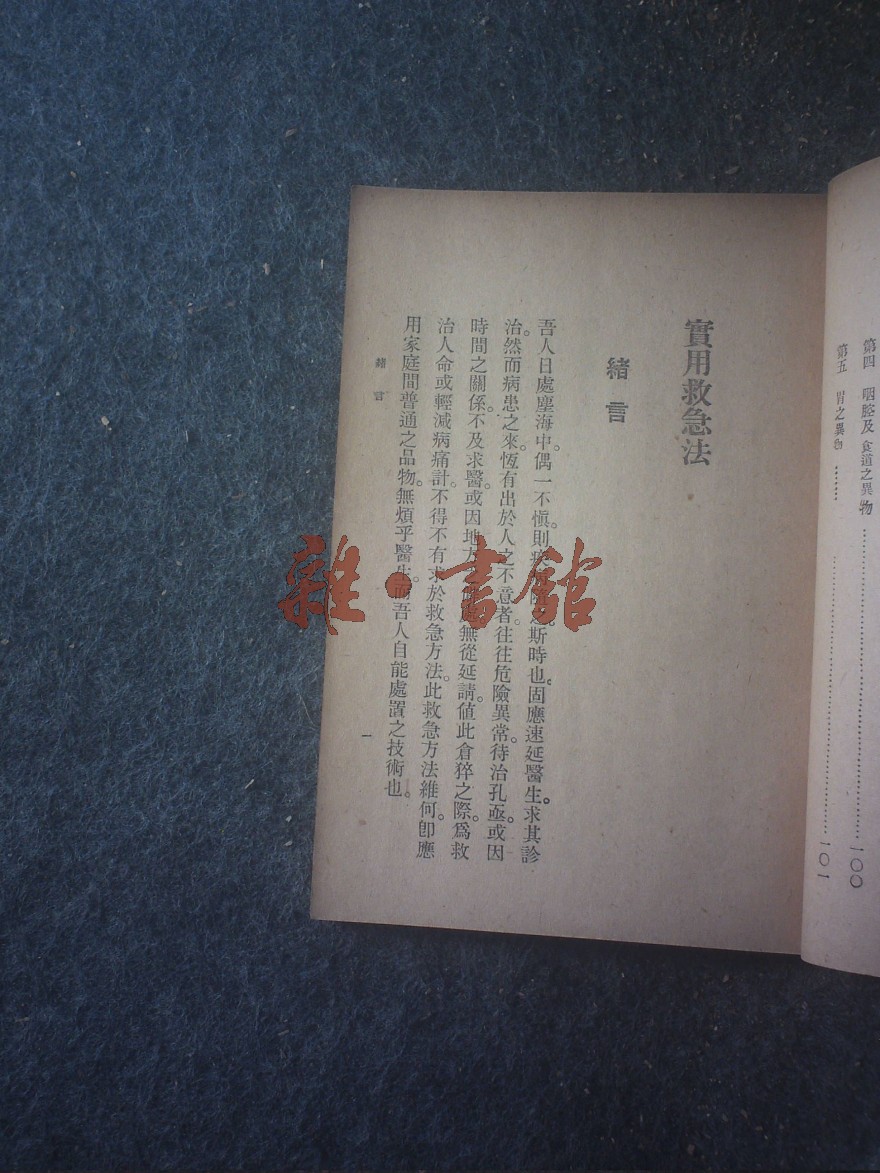 第四　咽腔及食道之異物……一〇〇
第五　胃之異物……一〇一
實用救急法
緒言
吾人日處塵海中。偶一不愼。則疾斯時也。固應速延醫生。求其診
治。然而病患之來。恆有出於人之不意者。往往危險異常。待治孔亟。或因
時間之關係。不及求醫。或因地無從延請。値此倉猝之際。爲救
治人命或輕減病痛計。不得不有求於救急方法。此救急方法維何。卽應
用家庭間普通之品物。無煩乎醫生。而吾人自能處置之技術也。
緒言
一
雜·書館